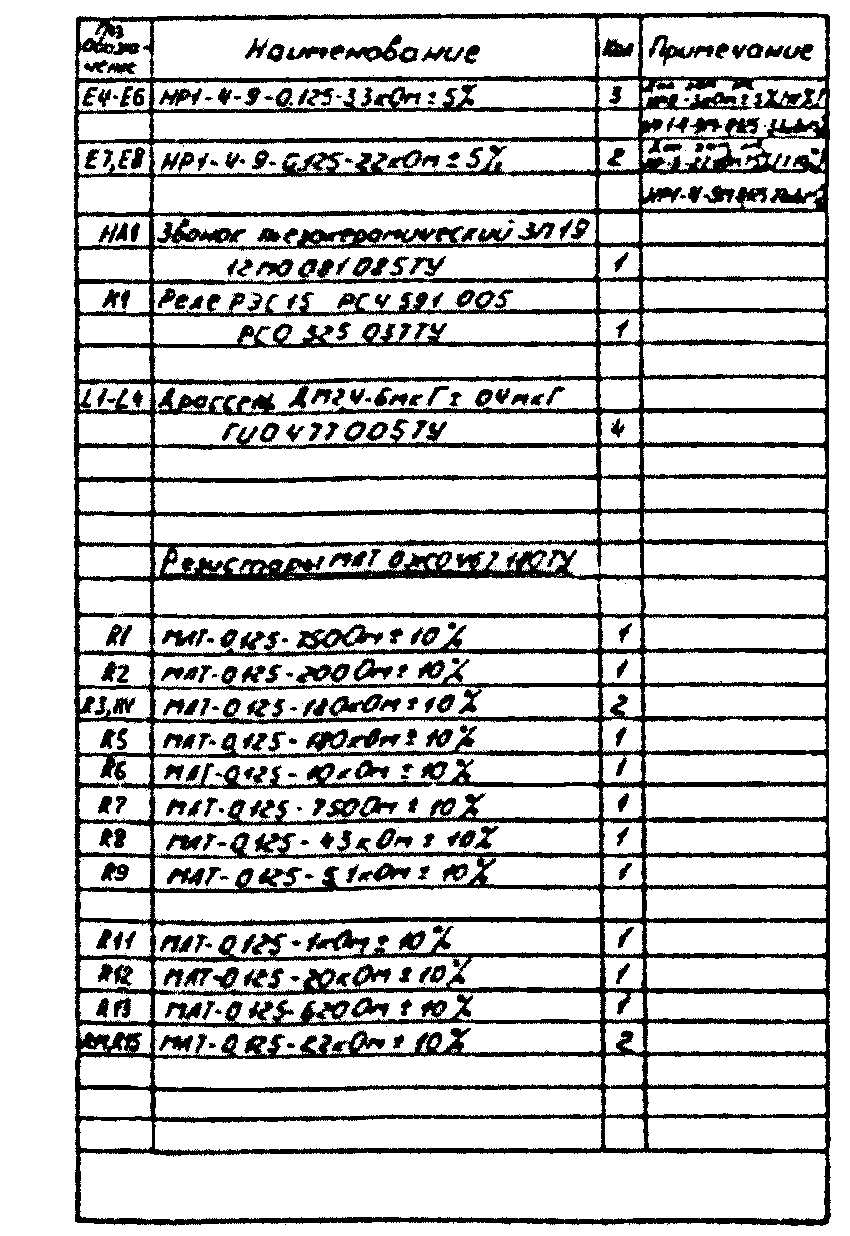 Поз
Обозна-
чение
Наименование
Кол
Примечание
E4-E6 НР1-4-9-0,125-3,3кОм ± 5% 3
E7,E8 НР1-4-9-0,125-22кОм ± 5% 2
НА1 Звонок пьезокерамический ЗП19
12МО 081 085ТУ 1
К1 Реле РЭС15 РС4 591 005
РСО 325 037ТУ 1
L1-L4 Дроссель ДМ2,4-6мкГ ± 0,4мкГ
ГИО 477 005ТУ 4
Резисторы МЛТ ОЖО 467 180ТУ
R1 МЛТ-0,125-750Ом ± 10% 1
R2 МЛТ-0,125-200Ом ± 10% 1
R3,R4 МЛТ-0,125-180кОм ± 10% 2
R5 МЛТ-0,125-180кОм ± 10% 1
R6 МЛТ-0,125-10кОм ± 10% 1
R7 МЛТ-0,125-750Ом ± 10% 1
R8 МЛТ-0,125-43кОм ± 10% 1
R9 МЛТ-0,125-5,1кОм ± 10% 1
R11 МЛТ-0,125-1кОм ± 10% 1
R12 МЛТ-0,125-20кОм ± 10% 1
R13 МЛТ-0,125-620Ом ± 10% 1
R14,R15 МЛТ-0,125-2,2кОм ± 10% 2